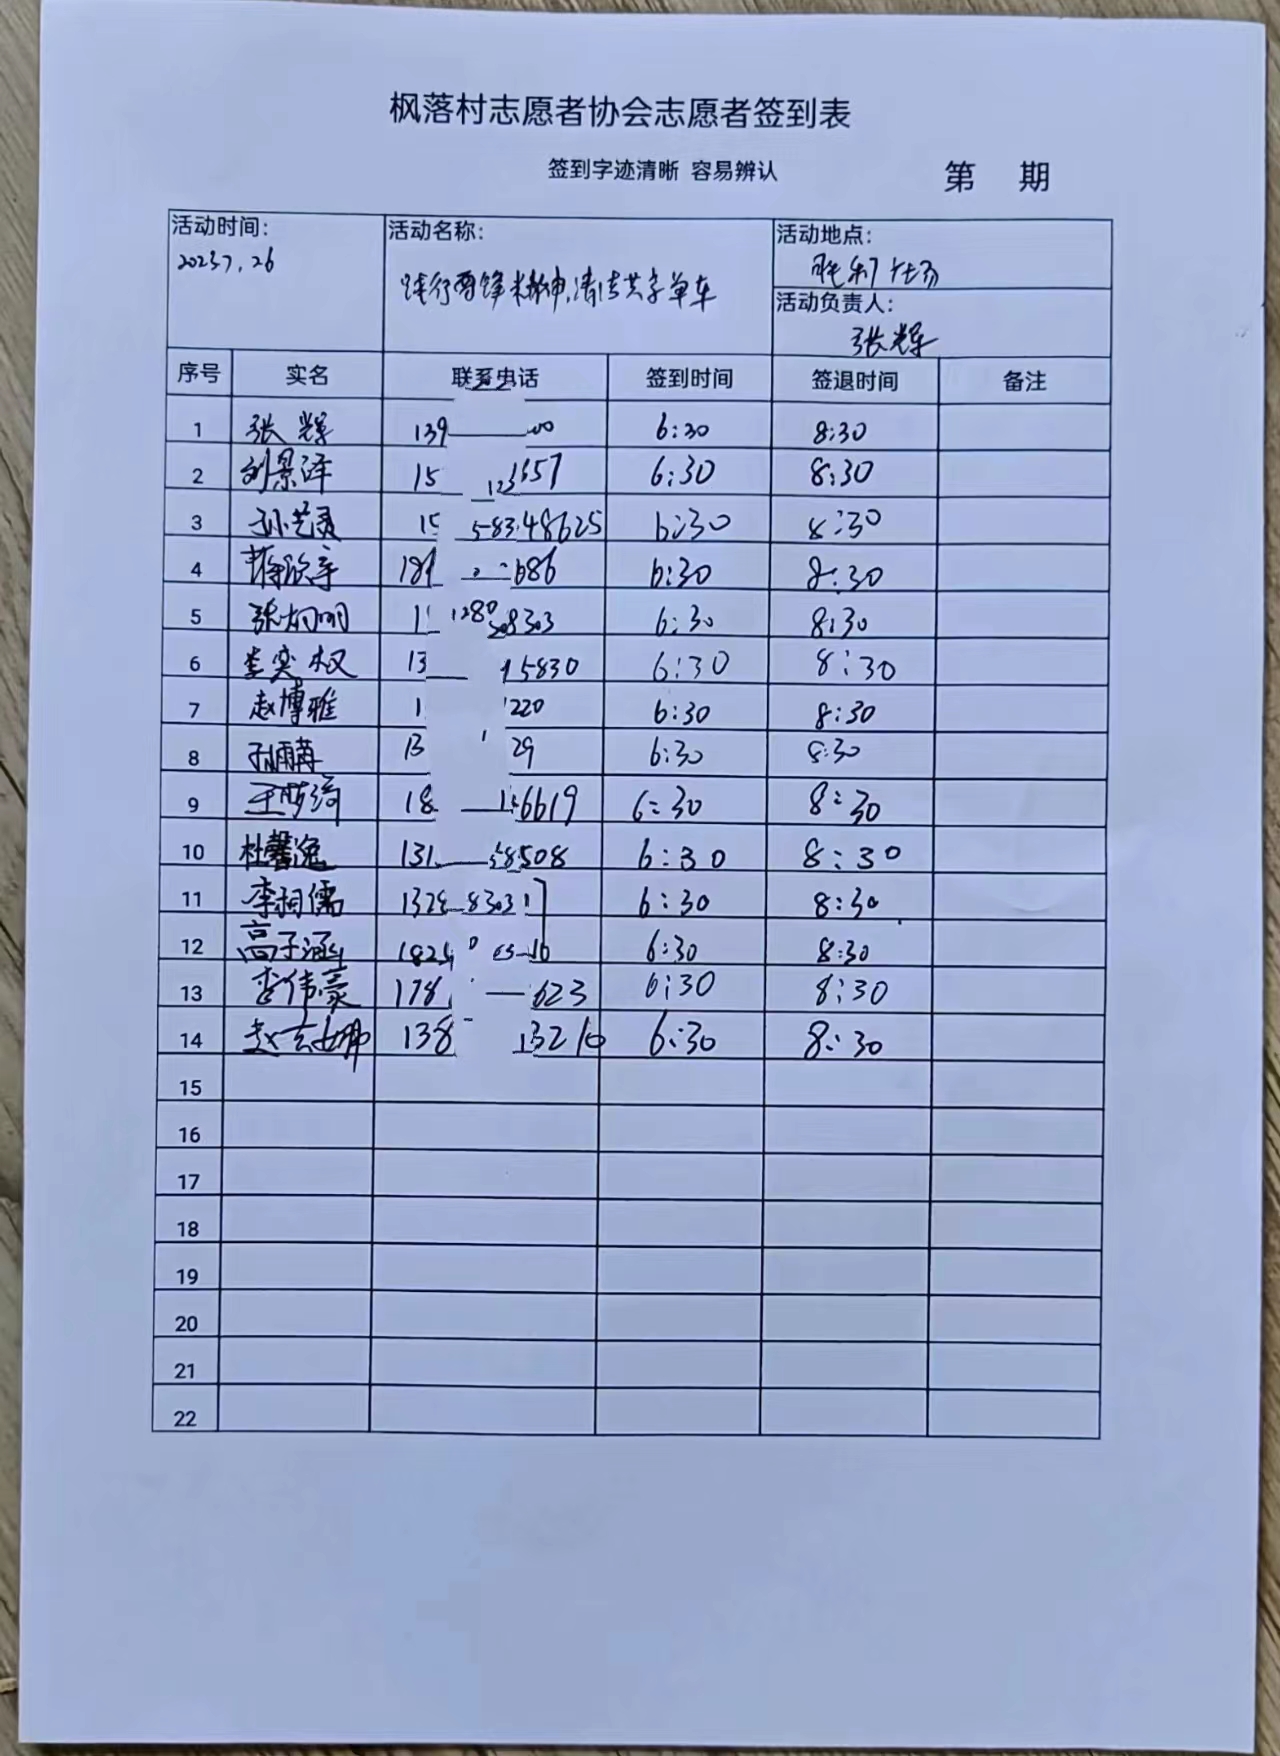 枫落村志愿者协会志愿者签到表
签到字迹清晰 容易辨认
第 期
活动时间:
2023 7.26
活动名称:
践行雷锋精神,清洁共享单车
活动地点:
胜利广场
活动负责人:
张辉
序号 实名 联系电话 签到时间 签退时间 备注
1 张辉 139 00 6:30 8:30
2 刘景泽 15 657 6:30 8:30
3 孙艺 15 58348625 6:30 8:30
4 蒋欣 18 686 6:30 8:30
5 张 明 1 8303 6:30 8:30
6 李奕权 13 15830 6:30 8:30
7 赵博雅 1 220 6:30 8:30
8 13 29 6:30 8:30
9 王梦琦 18 6619 6:30 8:30
10 杜馨逸 131 58508 6:30 8:30
11 李 儒 132 8303 6:30 8:30
12 高子涵 182 6:30 8:30
13 李伟豪 178 623 6:30 8:30
14 赵 娜 138 13210 6:30 8:30
15
16
17
18
19
20
21
22